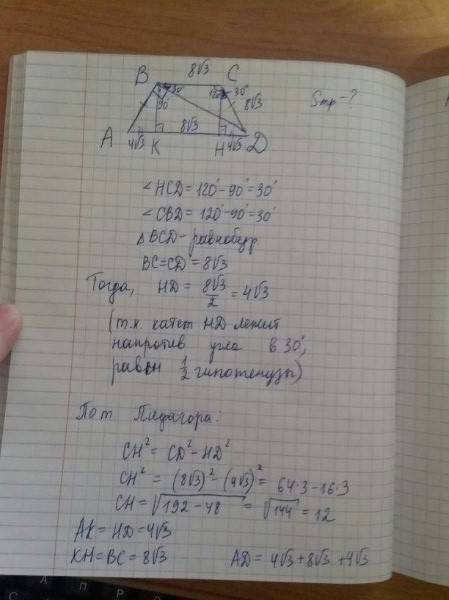 8√3
B C
30° 120° 30°
90° 8√3
Sтр-?
A 4√3 K 8√3 H 4√3 D
∠HCD = 120° - 90° = 30°
∠CBD = 120° - 90° = 30°
△BCD - равнобедр.
BC = CD = 8√3
Тогда, HD = 8√3/2 = 4√3
(т.к. катет HD лежит
напротив угла в 30°,
равен 1/2 гипотенузы)
По т. Пифагора:
CH² = CD² - HD²
CH² = (8√3)² - (4√3)² = 64·3 - 16·3
CH = √192 - 48 = √144 = 12
AK = HD = 4√3
KH = BC = 8√3 AD = 4√3 + 8√3 + 4√3